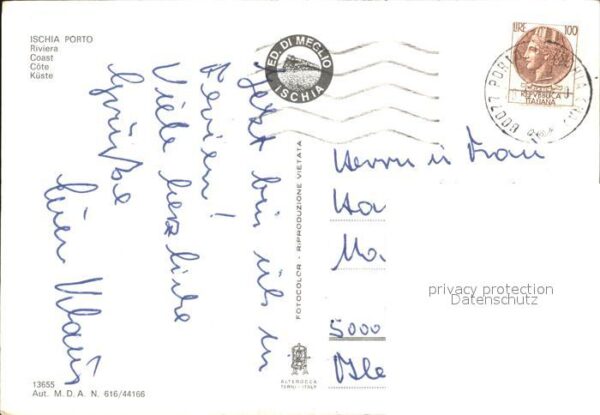 ISCHIA PORTO
Riviera
Coast
Côte
Küste
ED. DI MEGLIO
ISCHIA
LIRE 100
REPVBBLICA
ITALIANA
80077 PORTO
Jetzt bin ich in
Ferien!
Viele herzliche
Grüße
Euer Klaus
FOTOCOLOR - RIPRODUZIONE VIETATA
Herrn u Frau
Ha
Ma
privacy protection
Datenschutz
5000
ALTEROCCA
TERNI - ITALY
13655
Aut. M. D. A. N. 616/44166